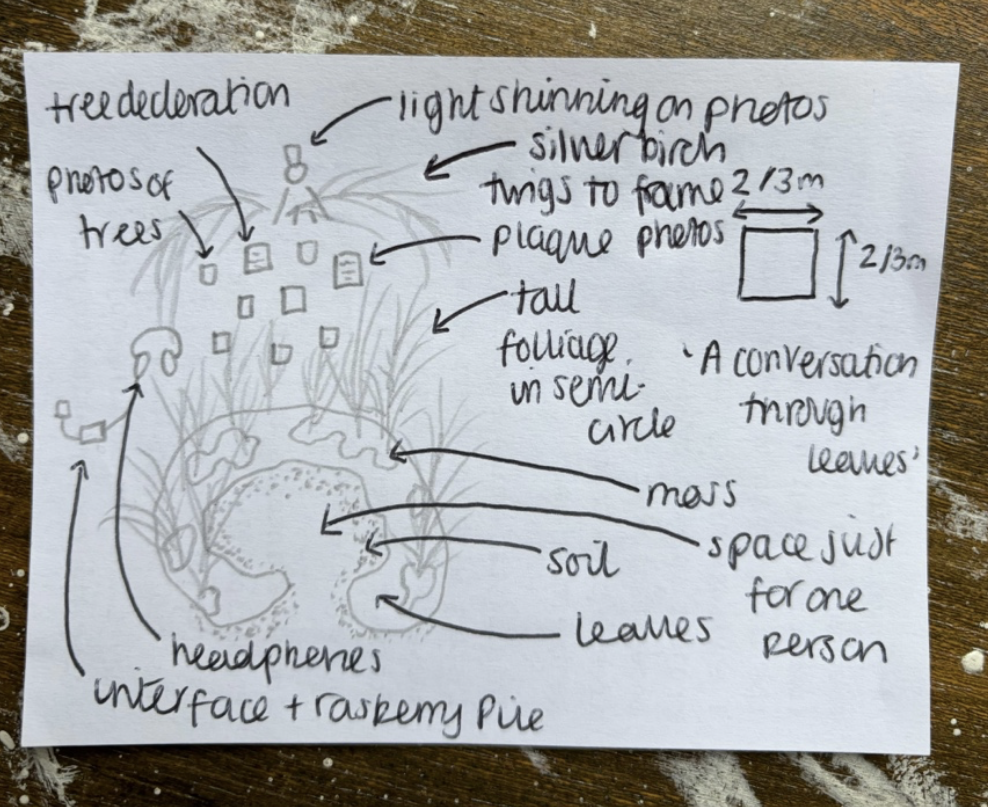 tree decleration
light shinning on photos
silver birch
twigs to frame
plaque photos
photos of
trees
2/3m
2/3m
tall
folliage
in semi-
circle
'A conversation
through
leaves'
moss
space just
for one
person
soil
leaves
headphones
interface + raskerry Pie